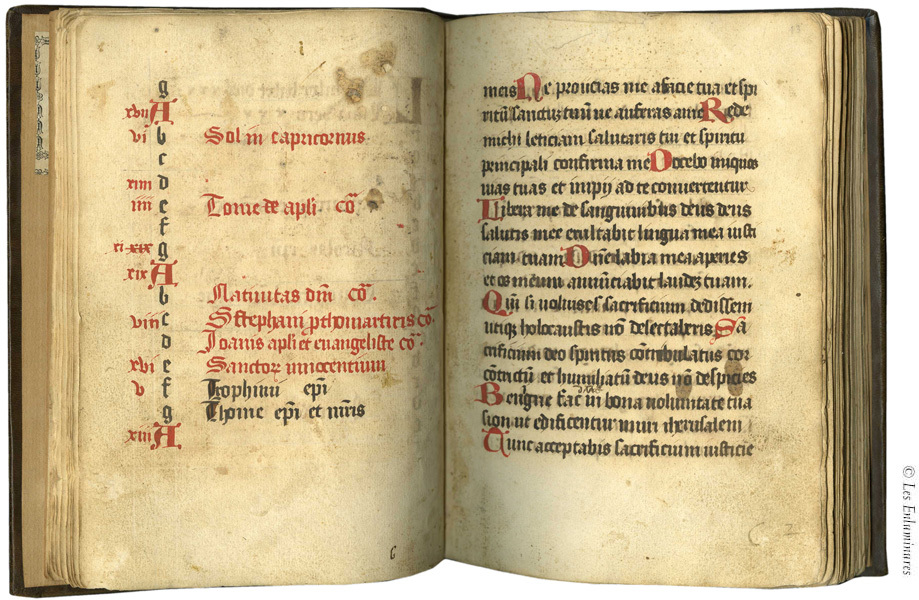 g
xvii A
vi b Sol in capricornus
c
xiiii d
iiii e Tome de apli cō
f
xi xix g
xix A
b Natiuitas dnī cō.
viii c S stephani ꝓthomartiris cō
d Joanis apli et euangeliste cō.
xvi e Sanctoꝝ innocentium
v f Trophimi epi
g Thome epi et mris
xiii A
6
meis Ne proicias me afacie tua et spi
ritū sanctū tuū ne auferas ame Rede
michi leticiam salutaris tui et spiritu
principali confirma me Docebo iniquos
uias tuas et impij ad te conuertentur
Libera me de sanguinibus deus deus
salutis mee exultabit lingua mea iusti
ciam tuam Dne labia mea aperies
et os meum anūnciabit laudeȝ tuam.
Qm̄ si uoluises sacrificium dedissem
utiqȝ holocaustis nō delectaberis Sa
crificium deo spiritus cōtribulatus cor
cōtritū et humiliatū deus nō despicies
Benigne fac in bona uoluntate tua
sion ut edificentur muri iherusalem
Tunc acceptabis sacrificium iusticie
© Les Enluminures